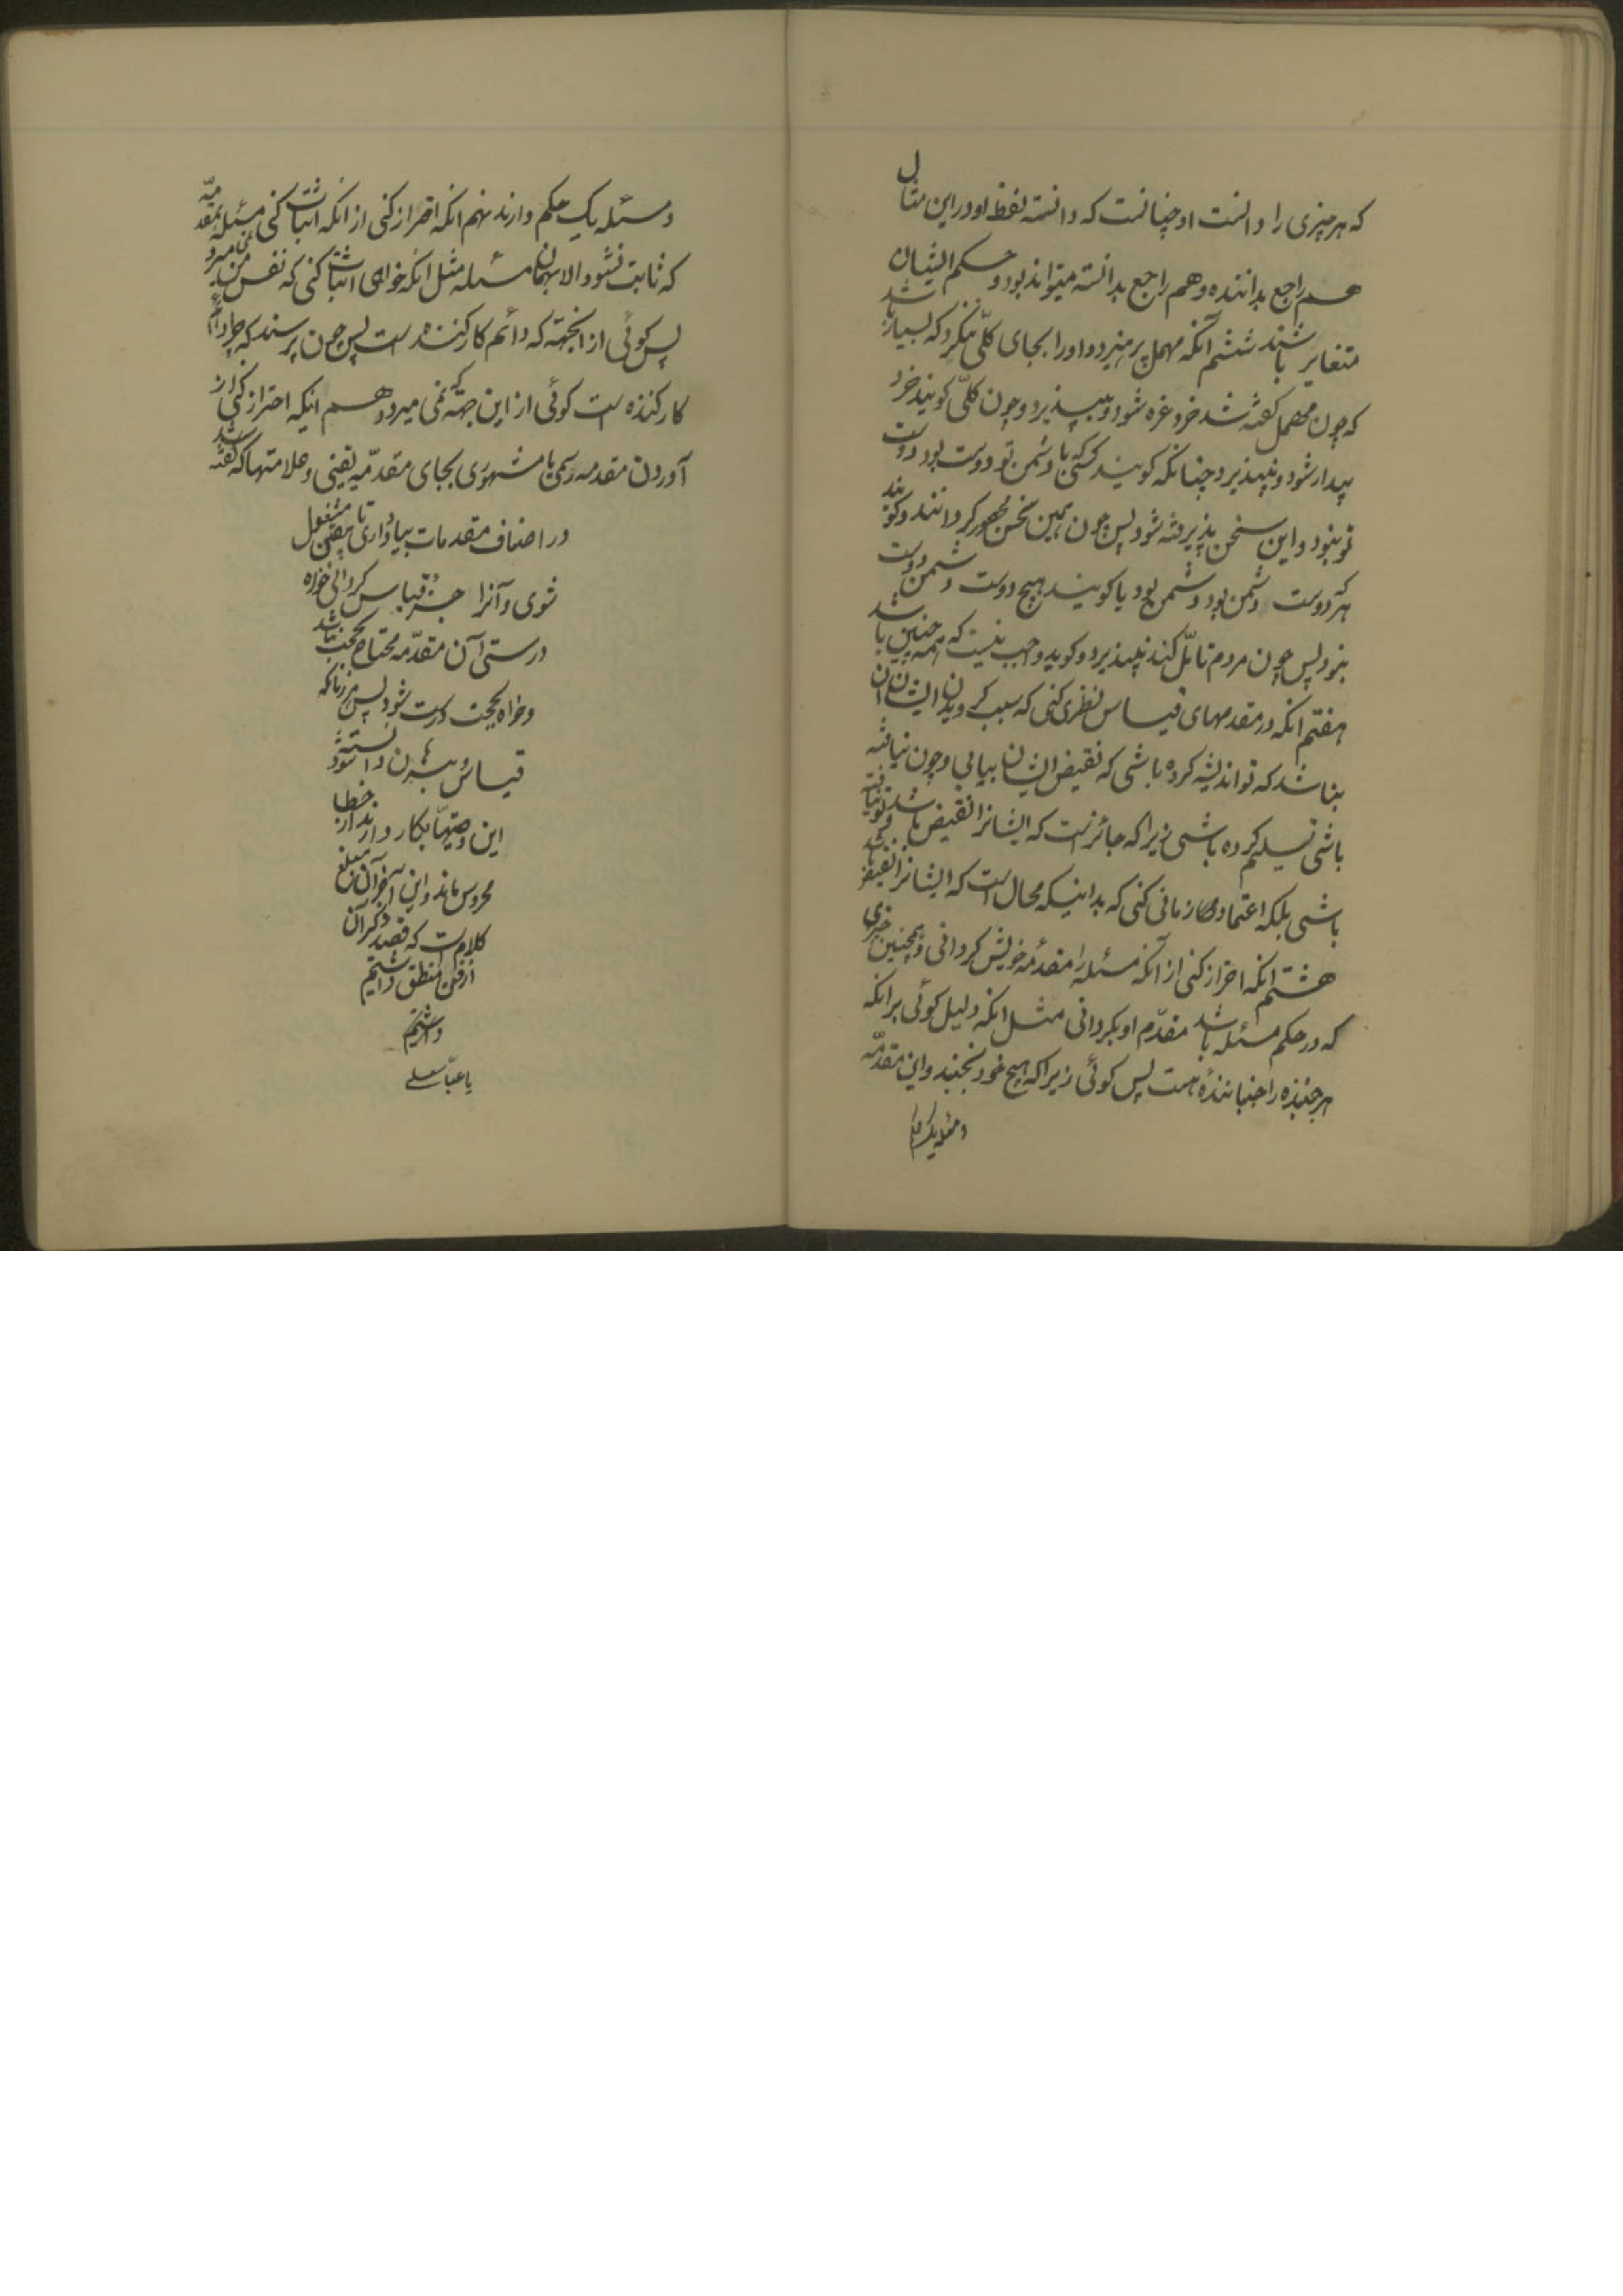 که هر چیزی را دانست او چنانست که دانسته لفظ او در این مثال
هم راجع بداننده و هم راجع بدانسته میتواند بود و حکم ایشان
متغایر باشند ششم آنکه مهمل پرهیزد و او را بجای کلّی نگیرد که بسیار باشد
که چون مهمل گفته شد خرد غره شود و بپذیرد و چون کلّی گویند خرد
بیدار شود و نپذیرد چنانکه گویند کسی که با دشمن تو دوست بود دوست
تو نبود و این سخن پذیرفته شود پس چون همین سخن محصور گردانند و گویند
که هر دوست دشمن بود دشمن بود یا گویند هیچ دوست دشمن دوست
نبود پس چون مردم تامّل کند نپذیرد و گوید واجب نیست که همه چنین باشد
هفتم آنکه در مقدمهای قیاس نظری کنی که سبب گرویدن ایشان آن
نباشد که تو اندیشه کرده باشی که نقیض ایشان بیابی و چون نیافته
باشی تسلیم کرده باشی زیرا که جائز است که ایشانرا نقیض باشد و تو نیافته
باشی بلکه اعتماد آنکاه زمانی کنی که بدانی که محال است که ایشانرا نقیض باشد
هشتم آنکه احتراز کنی از آنکه مسئله را مقدّمه خویش گردانی و همچنین چیزی
که در حکم مسئله باشد مقدّم او بگردانی مثل آنکه دلیل گوئی بر آنکه
هر جنبنده را جنبانندهٔ هست پس گوئی زیرا که هیچ خود نجنبد و این مقدّمه
و مسئله یک حکم
و مسئله یک حکم دارند نهم آنکه احتراز کنی از آنکه اثبات کنی مسئله بمقدمهٔ
که ثابت نشود الا بهمان مسئله مثل آنکه خواهی اثبات کنی که نفس نمی میرد
پس گوئی از آنجهة که دائم کار کننده است پس چون پرسند که چرا دائم
کار کننده است گوئی از این جهة که نمی میرد دهم اینکه احتراز کنی از
آوردن مقدمه رسمی یا مشهوری بجای مقدّمه یقینی و علامتها که گفته شد
در اصناف مقدمات بیاد داری تا بیقین مشغول
شوی و آنرا جزء قیاس گردانی خواه
درستی آن مقدّمه محتاج بحجت نباشد
و خواه بحجت درست شود پس هر زمانکه
قیاس برین دانسته شود
این وصیّتها بکار دارند از خطا
محروس ماند و این آخر آن مبلغ
کلام است که قصد ذکر آن
از فن منطق داشتیم
داشتیم
یا عبّاسعلی